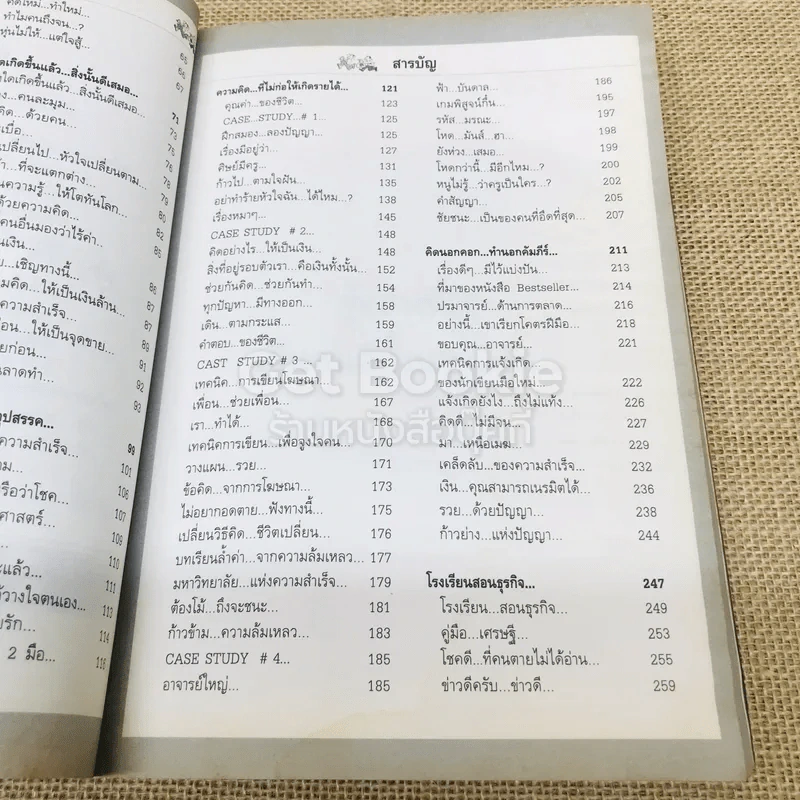 คิดใหม่...ทำใหม่...
ทำไมคนถึงจน...?
หุ่นไม่ให้...แต่ใจสู้...
65
66
67
เกิดขึ้นแล้ว...สิ่งนั้นดีเสมอ...
เกิดขึ้นแล้ว...สิ่งนั้นดีเสมอ... 71
...คนละมุม... 73
...ด้วยคน... 75
76
เปลี่ยนไป...หัวใจเปลี่ยนตาม... 78
...ที่จะแตกต่าง... 79
ความรู้...ให้โตทันโลก... 80
ด้วยความคิด... 82
คนอื่นมองว่าไร้ค่า... 85
เงิน...
...เชิญทางนี้... 86
คิด...ให้เป็นเงินล้าน... 87
ความสำเร็จ...
...ให้เป็นจุดขาย... 89
ก่อน... 91
ฉลาดทำ... 92
93
อุปสรรค...
ความสำเร็จ... 99
101
หรือว่าโชค... 106
ศาสตร์... 107
109
110
แล้ว... 111
วางใจตนเอง... 113
รัก... 114
2 มือ... 115
สารบัญ
ความคิด...ที่ไม่ก่อให้เกิดรายได้... 121
คุณค่า...ของชีวิต... 123
CASE...STUDY...# 1... 125
ฝึกสมอง...ลองปัญญา... 125
เรื่องมีอยู่ว่า... 127
ศิษย์มีครู... 131
ก้าวไป...ตามใจฝัน... 135
อย่าทำร้ายหัวใจฉัน...ได้ไหม...? 138
เรื่องหมาๆ... 145
CASE STUDY # 2... 148
คิดอย่างไร...ให้เป็นเงิน... 148
สิ่งที่อยู่รอบตัวเรา...คือเงินทั้งนั้น... 152
ช่วยกันคิด...ช่วยกันทำ... 154
ทุกปัญหา...มีทางออก... 158
เดิน...ตามกระแส... 159
คำตอบ...ของชีวิต... 161
CAST STUDY # 3 ... 162
เทคนิค...การเขียนโฆษณา... 162
เพื่อน...ช่วยเพื่อน... 167
เรา...ทำได้... 168
เทคนิคการเขียน...เพื่อจูงใจคน... 170
วางแผน...รวย... 171
ข้อคิด...จากการโฆษณา... 173
ไม่อยากอดตาย...ฟังทางนี้... 175
เปลี่ยนวิธีคิด...ชีวิตเปลี่ยน... 176
บทเรียนล้ำค่า...จากความล้มเหลว... 177
มหาวิทยาลัย...แห่งความสำเร็จ... 179
ต้องโม้...ถึงจะชนะ... 181
ก้าวข้าม...ความล้มเหลว... 183
CASE STUDY # 4... 185
อาจารย์ใหญ่... 185
ฟ้า...บันดาล... 186
เกมพิสูจน์กึ๋น... 195
รหัส...มรณะ... 197
โหด...มันส์...ฮา... 198
ยังห่วง...เสมอ... 199
โหดกว่านี้...มีอีกไหม...? 200
หนูไม่รู้...ว่าครูเป็นใคร...? 202
คำสัญญา... 205
ชัยชนะ...เป็นของคนที่อึดที่สุด... 207
คิดนอกคอก...ทำนอกคัมภีร์... 211
เรื่องดีๆ...มีไว้แบ่งปัน... 213
ที่มาของหนังสือ Bestseller... 214
ปรมาจารย์...ด้านการตลาด... 216
อย่างนี้...เขาเรียกโคตรฝีมือ... 218
ขอบคุณ...อาจารย์... 221
เทคนิคการแจ้งเกิด...
ของนักเขียนมือใหม่... 222
แจ้งเกิดยังไง...ถึงไม่แท้ง... 226
คิดดี...ไม่มีจน... 227
มา...เหนือเมฆ... 229
เคล็ดลับ...ของความสำเร็จ... 232
เงิน...คุณสามารถเนรมิตได้... 236
รวย...ด้วยปัญญา... 238
ก้าวย่าง...แห่งปัญญา... 244
โรงเรียนสอนธุรกิจ... 247
โรงเรียน...สอนธุรกิจ... 249
คู่มือ...เศรษฐี... 253
โชคดี...ที่คนตายไม่ได้อ่าน... 255
ข่าวดีครับ...ข่าวดี... 259
Get Bookie
ร้านหนังสือปูเป้